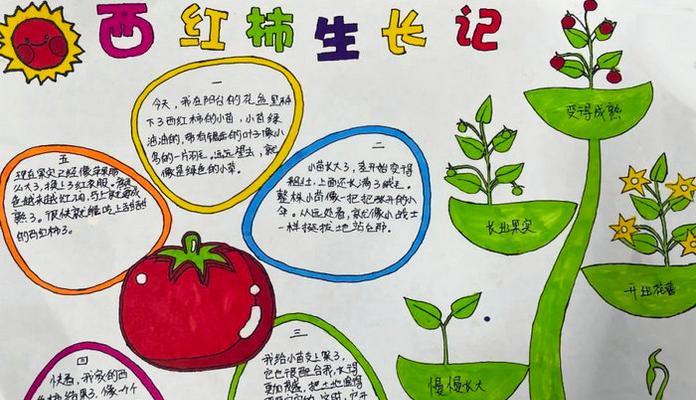 西红柿生长记
一
今天，我在阳台的花盆里种
下了西红柿的小苗，小苗绿
油油的，带有锯齿的叶子像小
鸟的一片羽毛。远远望去，就
像是绿色的小伞。
二
小苗长大了，茎开始变得
粗壮，上面还长满了绒毛。
整株小苗像一把把撑开的小
伞。从远处看，就像小战士
一样挺拔地站在那。
五
现在果实已经像苹果那
么大了，换上了红衣服。颜
色越来越红润，马上就要成
熟了。很快就能吃上甜甜
的西红柿了。
四
快看，我家的西
结果了，像一个个
三
我给小苗支上架了，
它也很配合我，长得
更加茂盛，把土地遮得
变得成熟
长出果实
开出花蕾
慢慢长大